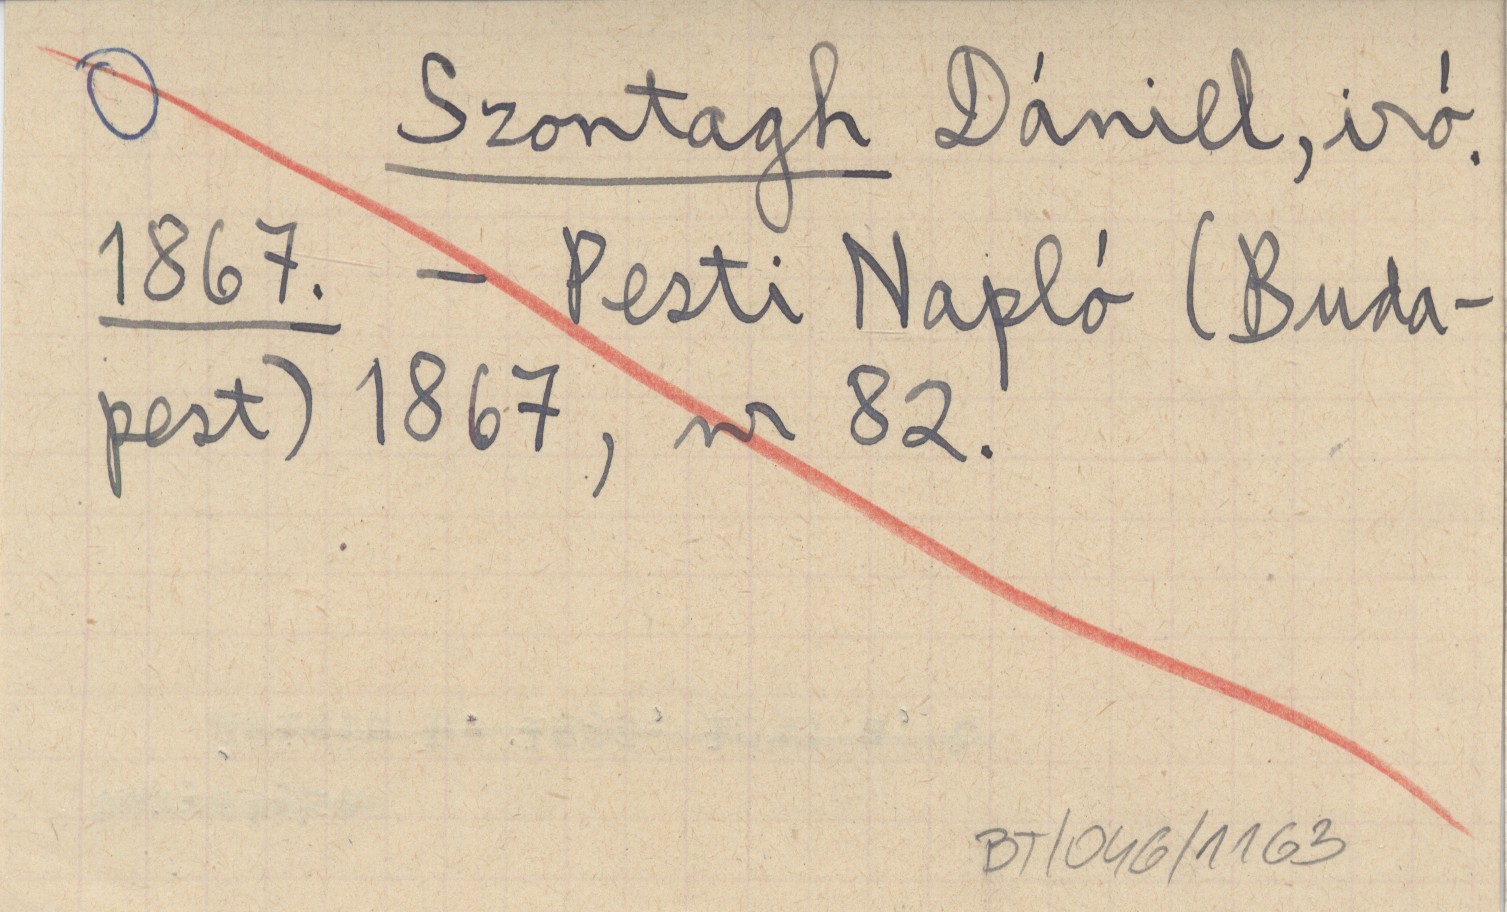 Szontagh Dániel, iró.
1867. – Pesti Napló (Buda-
pest) 1867, nr 82.
BT/046/1163